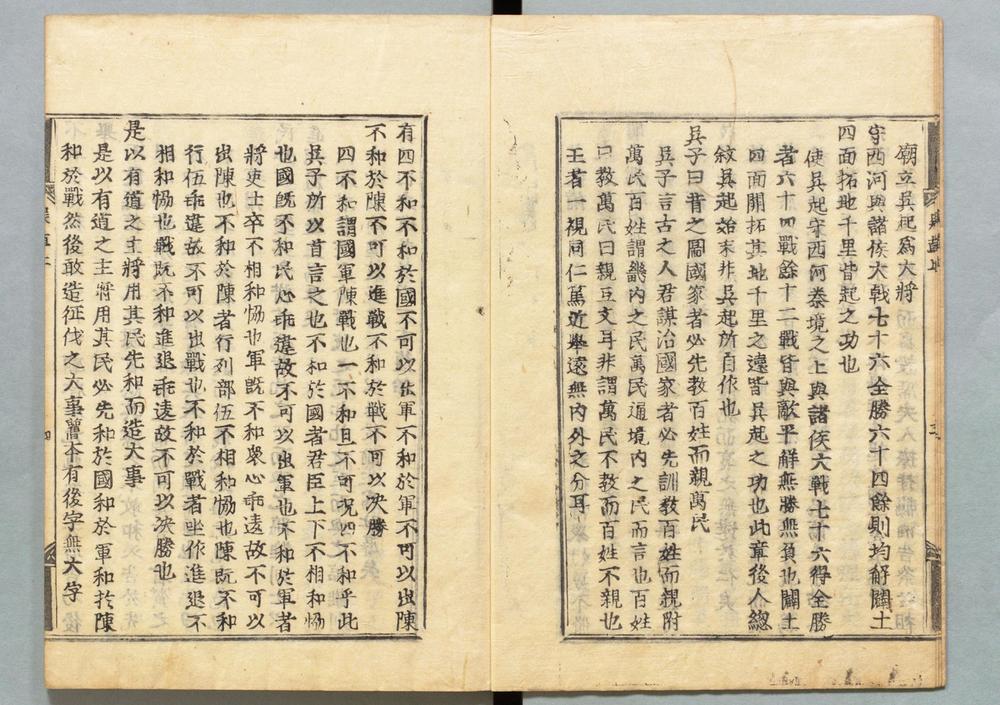 廟立吳起爲大將
守西河與諸侯大戰七十六全勝六十四餘則均解闢土
四面拓地千里皆起之功也
使吳起守西河秦境之上與諸侯大戰七十六得全勝
者六十四戰餘十二戰皆與敵平解無勝無負也闢土
四面開拓其地千里之遠皆吳起之功也此章後人總
敘吳起始末非吳起所自作也
吳子曰昔之圖國家者必先教百姓而親萬民
吳子言古之人君謀治國家者必先訓教百姓而親附
萬民百姓謂畿內之民萬民通境內之民而言也百姓
曰教萬民曰親互文耳非謂萬民不教而百姓不親也
王者一視同仁篤近舉遠無內外之分耳
有四不和不和於國不可以出軍不和於軍不可以出陳
不和於陳不可以進戰不和於戰不可以決勝
四不和謂國軍陳戰也一不和且不可況四不和乎此
吳子所以首言之也不和於國者君臣上下不相和恊
也國旣不和民心乖違故不可以出軍也不和於軍者
將吏士卒不相和恊也軍旣不和衆心乖違故不可以
出陳也不和於陳者行列部伍不相和恊也陳旣不和
行伍乖違故不可以出戰也不和於戰者坐作進退不
相和恊也戰旣不和進退乖違故不可以決勝也
是以有道之主將用其民先和而造大事
是以有道之主將用其民必先和於國和於軍和於陳
和於戰然後敢造征伐之大事舊本有後字無大字
四